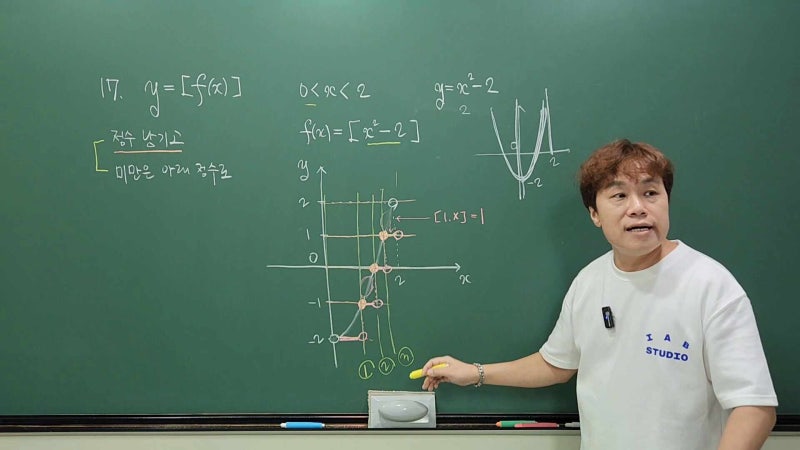 17. y=[f(x)]
정수 남기고
미만은 아래 정수로
0<x<2
f(x)=[x²-2]
y=x²-2
2
0
2
-2
y
2
1
0
-1
-2
2
x
[1.x]=1
① ② ③
IAB
STUDIO